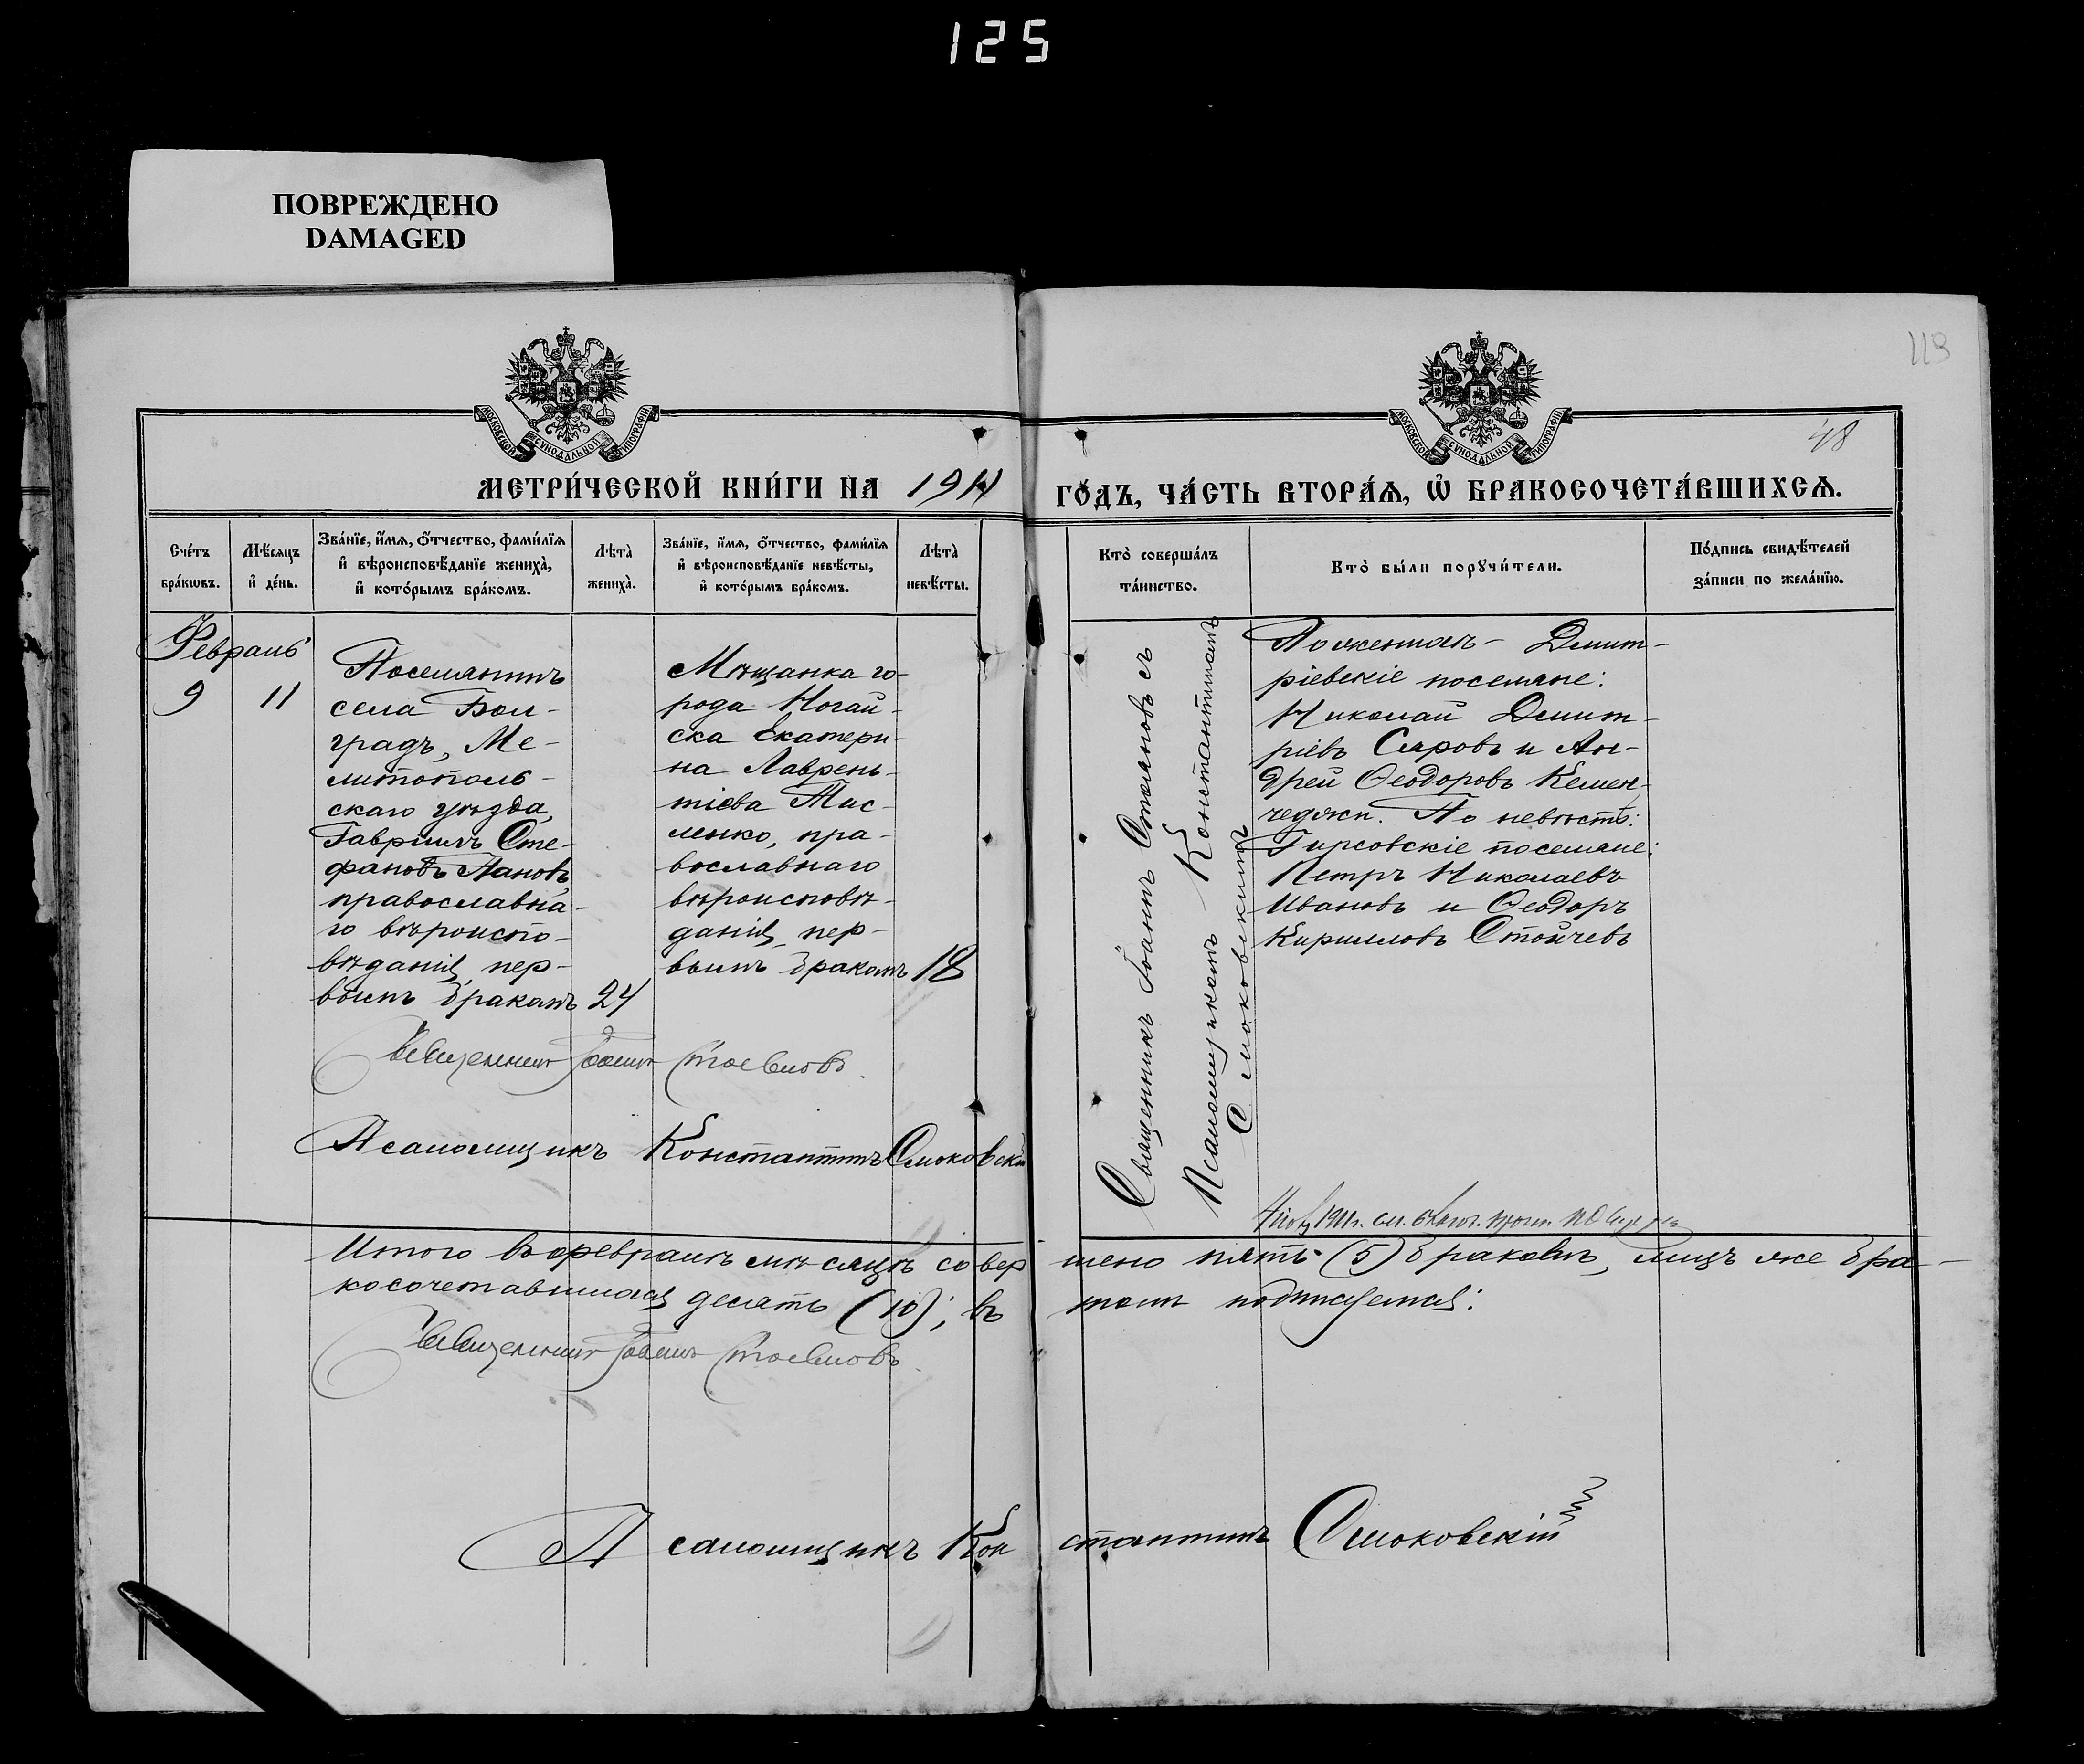 125
ПОВРЕЖДЕНО
DAMAGED
118
48
МОСКОВСКОЙ СѴНОДАЛЬНОЙ ТИПОГРАФІИ
МОСКОВСКОЙ СѴНОДАЛЬНОЙ ТИПОГРАФІИ
МЕТРИ́ЧЕСКОЙ КНИ́ГИ НА 1911 ГО́ДЪ, ЧА́СТЬ ВТОРА́Ѧ, Ѡ҆ БРАКОСОЧЕТА́ВШИХСѦ.
Сче́тъ
бра́кѡвъ.
Мѣ́сѧцъ
и҆ де́нь.
Зва́нїе, и҆́мѧ, ѻ҆́тчество, фами́лїѧ
и҆ вѣроисповѣ́данїе жениха̀,
и҆ кото́рымъ бра́комъ.
Лѣта̀
жениха̀.
Зва́нїе, и҆́мѧ, ѻ҆́тчество, фами́лїѧ
и҆ вѣроисповѣ́данїе невѣ́сты,
и҆ кото́рымъ бра́комъ.
Лѣта̀
невѣ́сты.
Кто̀ соверша́лъ
та́инство.
Кто̀ бы́ли порꙋчи́тели.
По́дпись свидѣ́телей
за́писи по жела́нїю.
Февраль
9
11
Поселянинъ
села Бол-
градъ, Ме-
литополь-
скаго уѣзда,
Гавріилъ Сте-
фановъ Пановъ
православна-
го вѣроиспо-
вѣданія, пер-
вымъ бракомъ
24
Мѣщанка го-
рода Ногай-
ска Екатери-
на Лаврень-
тіева Тис-
ленко, пра-
вославнаго
вѣроисповѣ-
данія, пер-
вымъ бракомъ
18
Священникъ Іоаннъ Стояновъ съ
Псаломщикомъ Константиномъ
Смоковскимъ
По женихѣ - Дмит-
ріевскіе поселяне:
Николай Дмит-
ріевъ Сяровъ и Ан-
дрей Ѳеодоровъ Кемен-
чеджи. По невѣстѣ:
Гирсовскіе поселяне:
Петръ Николаевъ
Ивановъ и Ѳеодоръ
Кирилловъ Стойчевъ
Священникъ Іоаннъ Стояновъ.
Псаломщикъ Константинъ Смоковскій
1911г.
Итого въ февралѣ мѣсяцѣ совер шено пять (5) браковъ, лицъ же бра-
косочетавшихся десять (10); въ томъ подписуемся:
Священникъ Іоаннъ Стояновъ.
Псаломщикъ Кон стантинъ Смоковскій